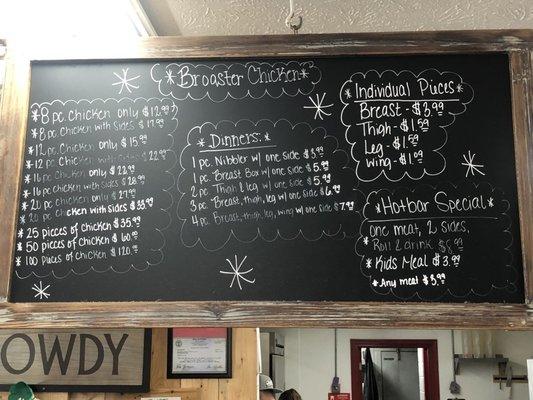 * Broaster Chicken *
* 8 pc Chicken only $12.99
* 8 pc. Chicken with sides $17.99
* 12 pc. Chicken only $15.99
* 12 pc. Chicken with sides $22.99
* 16 pc Chicken only $22.99
* 16 pc chicken with sides $28.99
* 20 pc chicken only $27.99
* 20 pc chicken with sides $33.99
* 25 pieces of chicken $35.00
* 50 pieces of chicken $60.00
* 100 Pieces of chicken $120.00
Dinners: *
1 pc. Nibbler w/ one side $3.99
1 pc. Breast Box w/ one side $5.99
2 pc. Thigh & leg w/ one side $5.99
3 pc. Breast, thigh, leg w/ one side $6.99
4 pc. Breast, thigh, leg, wing w/ one side $7.99
* Individual Pieces *
Breast - $3.99
Thigh - $1.59
Leg - $1.59
Wing - $1.09
* Hotbar Special *
one meat, 2 sides,
* Roll & drink $8.99
* Kids Meal $3.99
* Any meat $3.99
OWDY